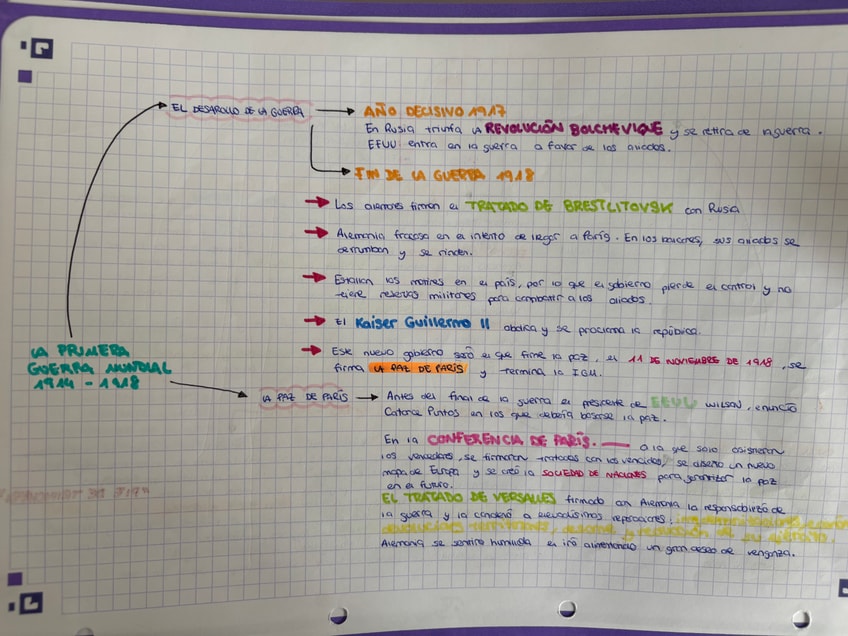 EL DESAROLLO DE LA GUERRA
AÑO DECISIVO 1917
En Rusia triunfa la REVOLUCIÓN BOLCHEVIQUE y se retira de la guerra.
EEUU entra en la guerra a favor de los aliados.
FIN DE LA GUERRA 1918
Los alemanes firman el TRATADO DE BRESTLITOVSK con Rusia
Alemania fracasa en el intento de llegar a París. En los balcanes, sus aliados se
derrumban y se rinden.
Estallan los motines en el país, por lo que el gobierno pierde el control y no
tiene reservas militares para combatir a los aliados.
El Kaiser Guillermo II abdica y se proclama la república.
Este nuevo gobierno será el que firme la paz, el 11 DE NOVIEMBRE DE 1918, se
firma LA PAZ DE PARÍS y termina la IGM.
LA PRIMERA
GUERRA MUNDIAL
1914 - 1918
LA PAZ DE PARÍS
Antes del final de la guerra el presidente de EEUU WILSON, enunció
Catorce Puntos en los que debería basarse la paz.
En la CONFERENCIA DE PARÍS. a la que solo asisneron
los vencedores, se firmaron tratados con los vencidos, se diseño un nuevo
mapa de Europa y se creó la SOCIEDAD DE NACIONES para garantizar la paz
en el futuro.
EL TRATADO DE VERSALLES firmado con Alemania la responsabilizó de
la guerra y la condenó a elevadísimas reparaciones,
devoluciones territoriales, desarme y reducción de su ejército.
Alemania se sentirá humillada e irá alimentando un gran deseo de venganza.